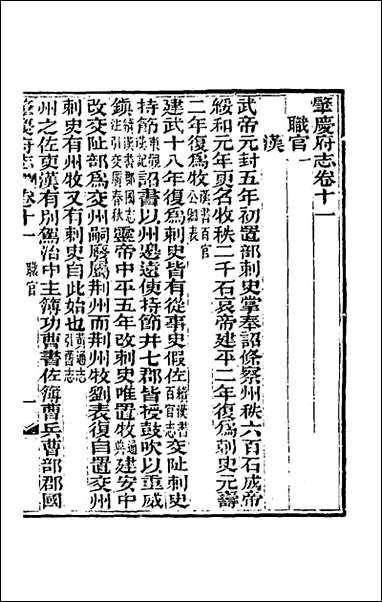 肇慶府志卷十一
職官一
漢
武帝元封五年初置部刺史掌奉詔條察州秩六百石成帝
綏和元年更名牧秩二千石哀帝建平二年復爲刺史元壽
二年復爲牧漢書百官公卿表
建武十八年復爲刺史皆有從事史假佐續漢書百官志交阯刺史
持節東觀漢記詔書以州邊遠使持節并七郡皆授鼓吹以重威
鎮續漢書郡國志注引交廣春秋靈帝中平五年改刺史唯置牧通典建安中
改交阯部爲交州嗣厯屬荆州而荆州牧劉表復自置交州
刺史有州牧又有刺史自此始也黃通志引舊志
州之佐吏漢有別駕治中主簿功曹書佐簿曹兵曹部郡國
肇慶府志 卷十一 職官 一